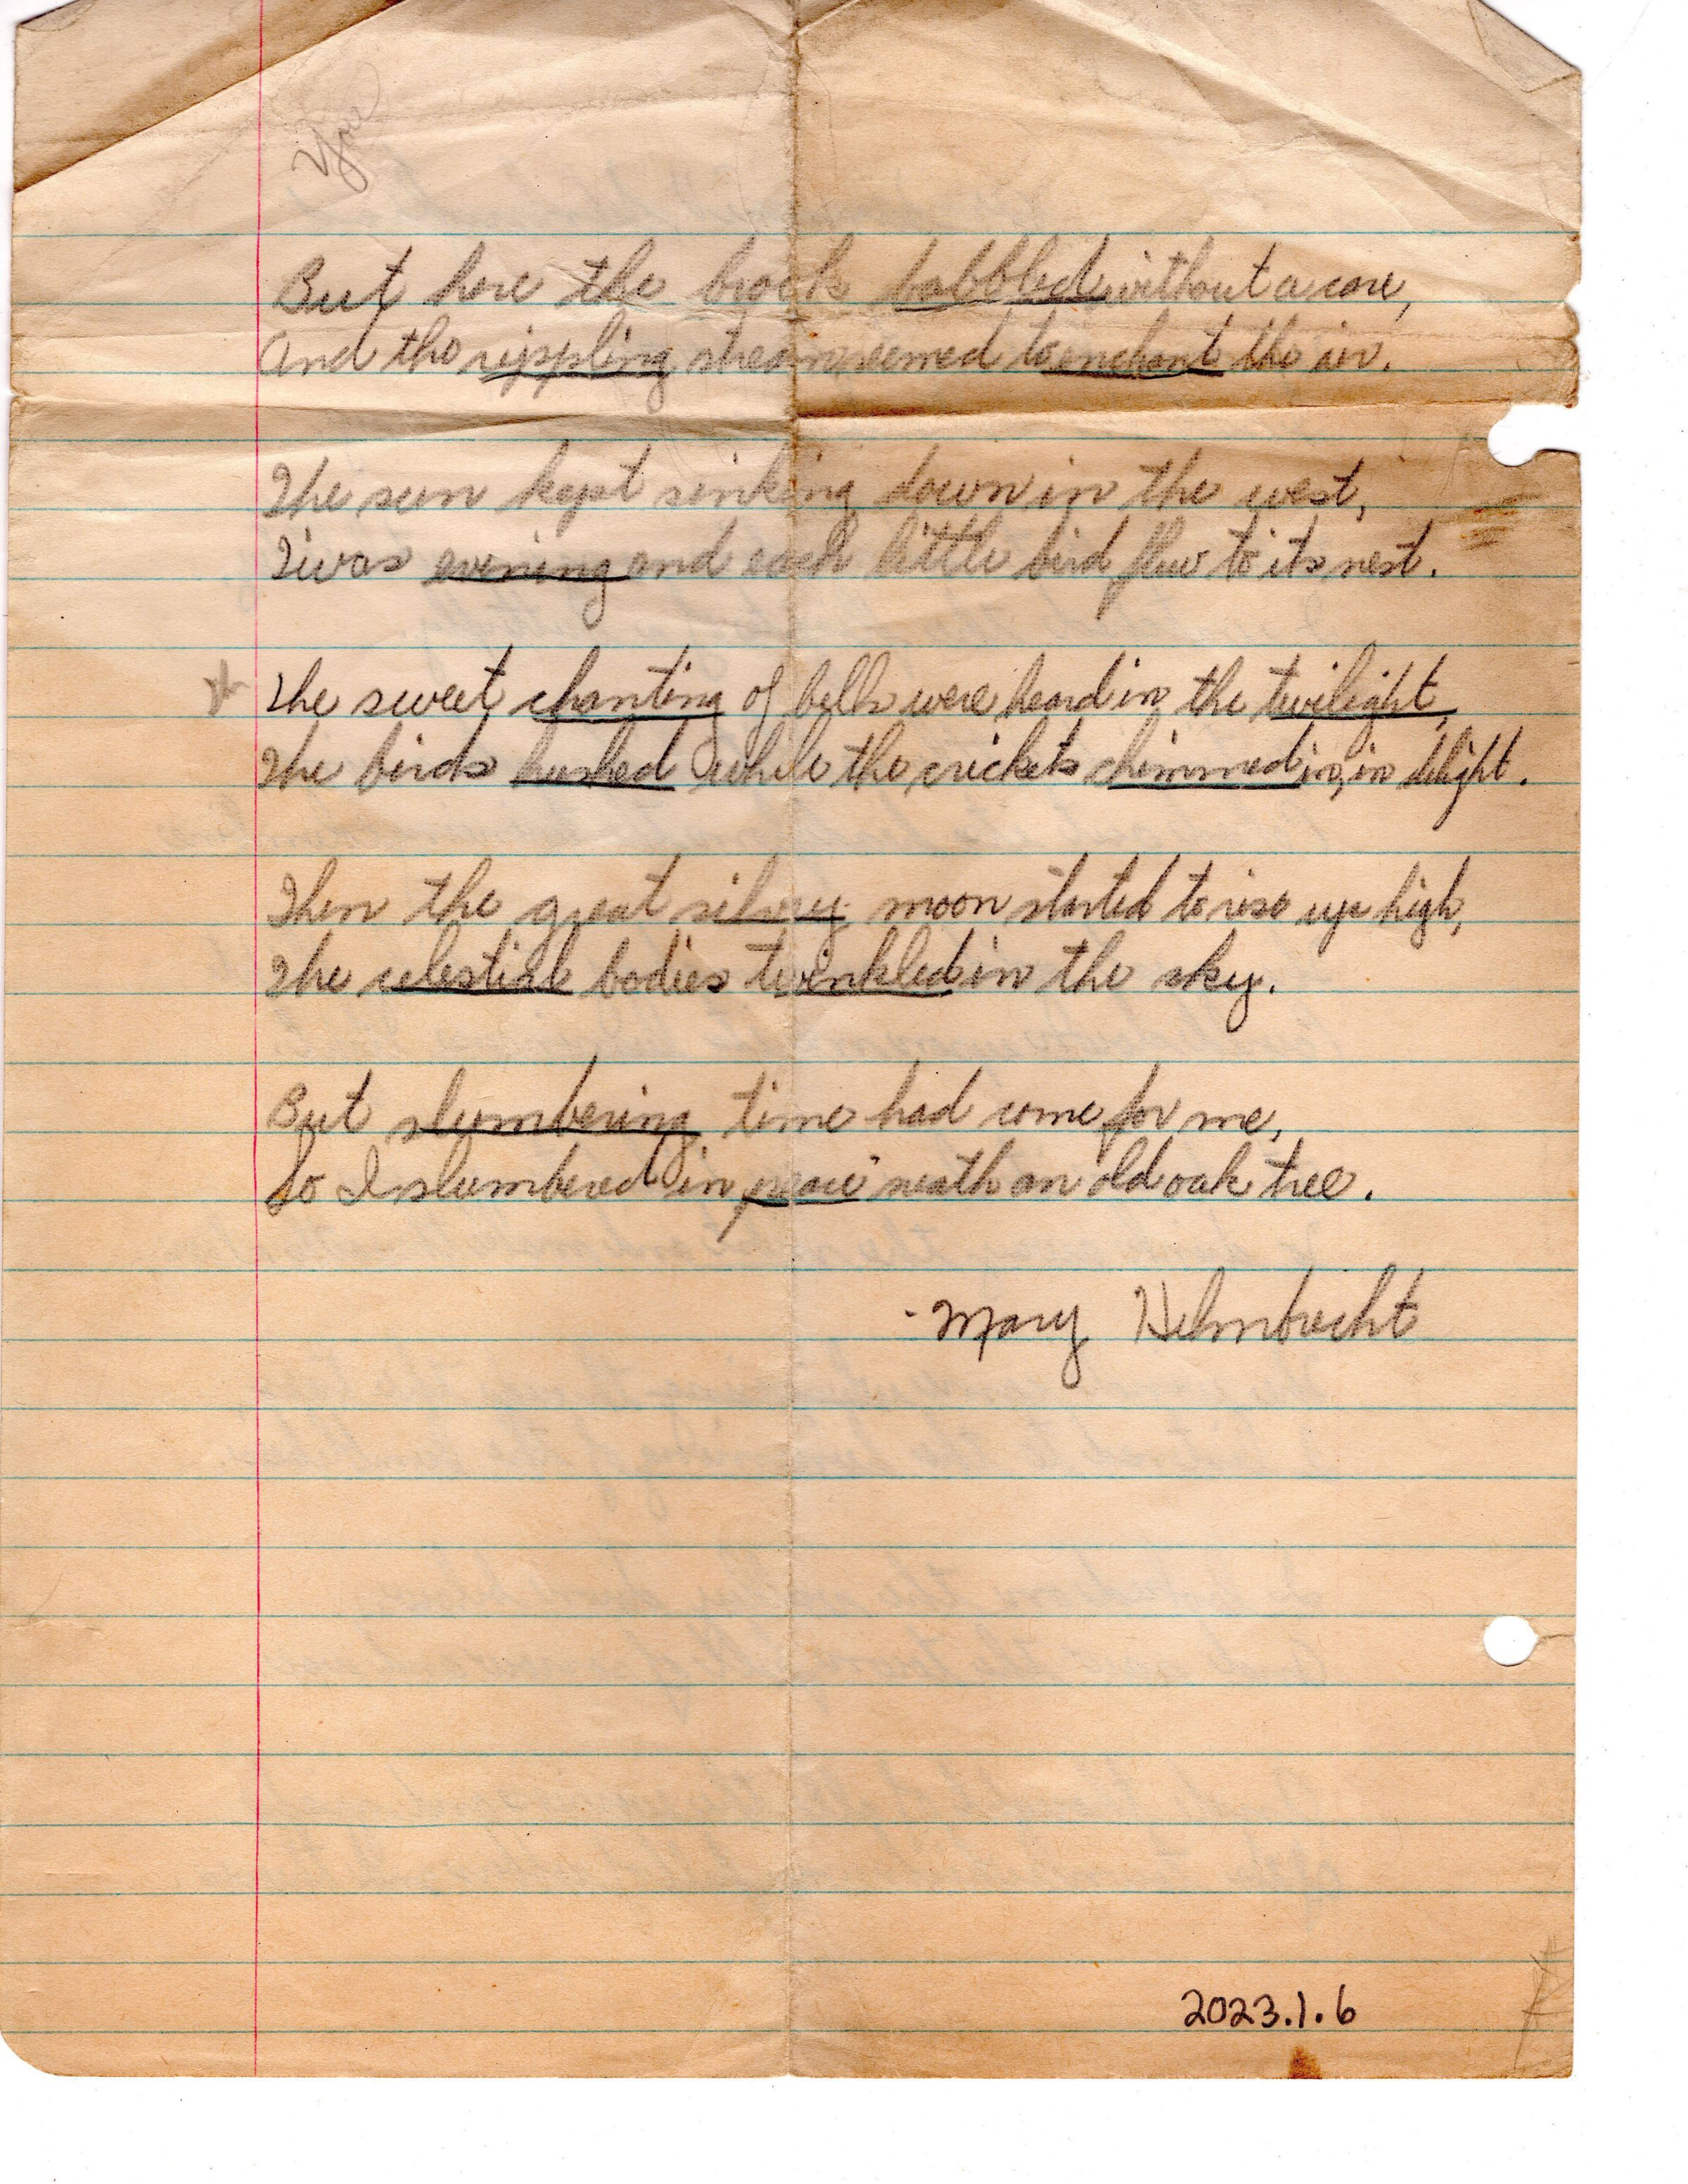 You
But here the brook babbled without a care,
And the rippling stream seemed to enchant the air.
The sun kept sinking down in the west,
Twas evening and each little bird flew to its nest.
* The sweet chanting of bells were heard in the twilight,
The birds hushed while the crickets chimmed in, in delight.
Then the great silvery moon started to rise up high,
The celestial bodies twinkled in the sky.
But slumbering time had come for me,
So I slumbered in peace neath an old oak tree.
-Mary Helmbrecht
2023.1.6